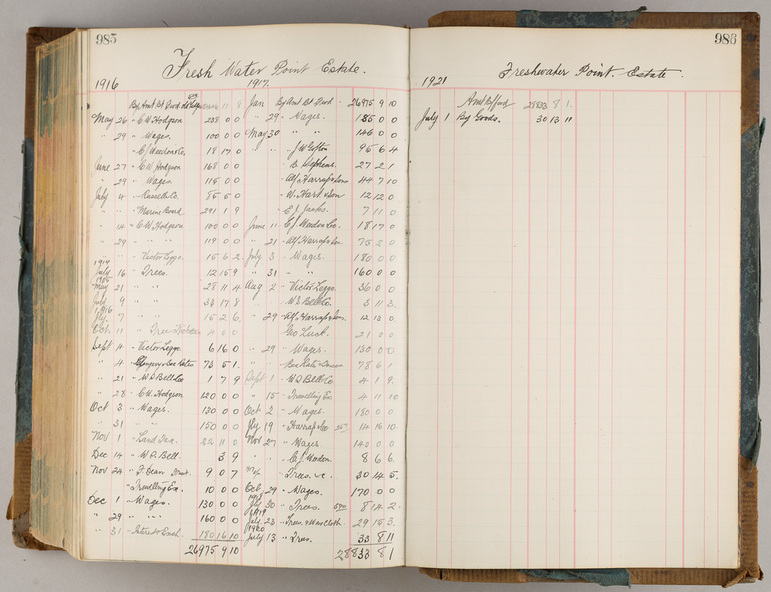 985
Fresh Water Point Estate.
1916
1917.
By Amt Bt Fwd
May 26 " C W Hodgson 238 0 0
" 29 " Wages. 100 0 0
C J Weedon & Co. 18 17 0
June 27 " C W Hodgson 168 0 0
" 29 " Wages 115 0 0
July 4 " Cassell & Co. 85 5 0
" " " Marine Board 291 1 9
" 14 " C W Hodgson 100 0 0
" 29 " " " 119 0 0
" " Victor Legge. 15 6 2
1914
July 16 " Trees. 12 15 9
1915
May 21 " " 28 11 4
July 9 " " 34 17 8
1916
July 7 " " 15 2 6.
Oct 11 " 4 0 0
Sept 4 " Victor Legge 6 16 0
" 4 Rates 73 5 1.
" 21 " W D Bell & Co 1 7 9
" 28 " C W Hodgson 120 0 0
Oct 3 " Wages. 130 0 0
" 31 " " 150 0 0
Nov 1 " Land Tax. 22 11 0
Dec 14 " W D Bell. 3 9
Nov 24 " F Dean 9 0 7
" Travelling Ex. 10 0 0
Dec 1 " Wages. 130 0 0
" 29 " " " 160 0 0
" 31 " Interest & Exch. 180 16 10
26975 9 10
Jan By Amt Bt Fwd 26975 9 10
" 29 " Wages. 135 0 0
May 30 " " 146 0 0
" " J W Gofton 95 6 4
" B Stephens. 27 2 1
" Alf Harrap & Son 44 7 10
" W. Hart & Son 12 12 0
" C J 7 11 0
June 11 " C J Weedon & Co. 18 17 0
" 21 " Alf Harrap & Son 75 0
July 3 " Wages. 180 0 0
" 31 " " 160 0 0
Aug 2 " Victor Legge 36 0 0
" W D Bell & Co. 3 11 3.
" 29 " Alf Harrap & Son 12 13 0
Geo Luck. 21 0 0
" 29 " Wages. 130 0 0
" " 78 6 1
Sept 1 " W D Bell & Co 4 1 9.
" 15 " Travelling Ex 4 11 10
Oct 2 " Wages. 180 0 0
July 19 " Harrap & Co 14 16 10
Nov 27 " Wages 140 0 0
" C J Weedon. 8 6 6.
" Trees. &c. 30 14 5.
Oct 29 " Wages. 170 0 0
1918
July 30 " Trees. 8 14 2.
1919
July 23 " Trees. & Wax Cloth. 29 15 3.
1920
July 13 " Trees. 33 8 11
28833 8 1
986
Freshwater Point. Estate.
1921
Amt B/fwd 28833 8 1.
July 1 By Goods. 30 13 11